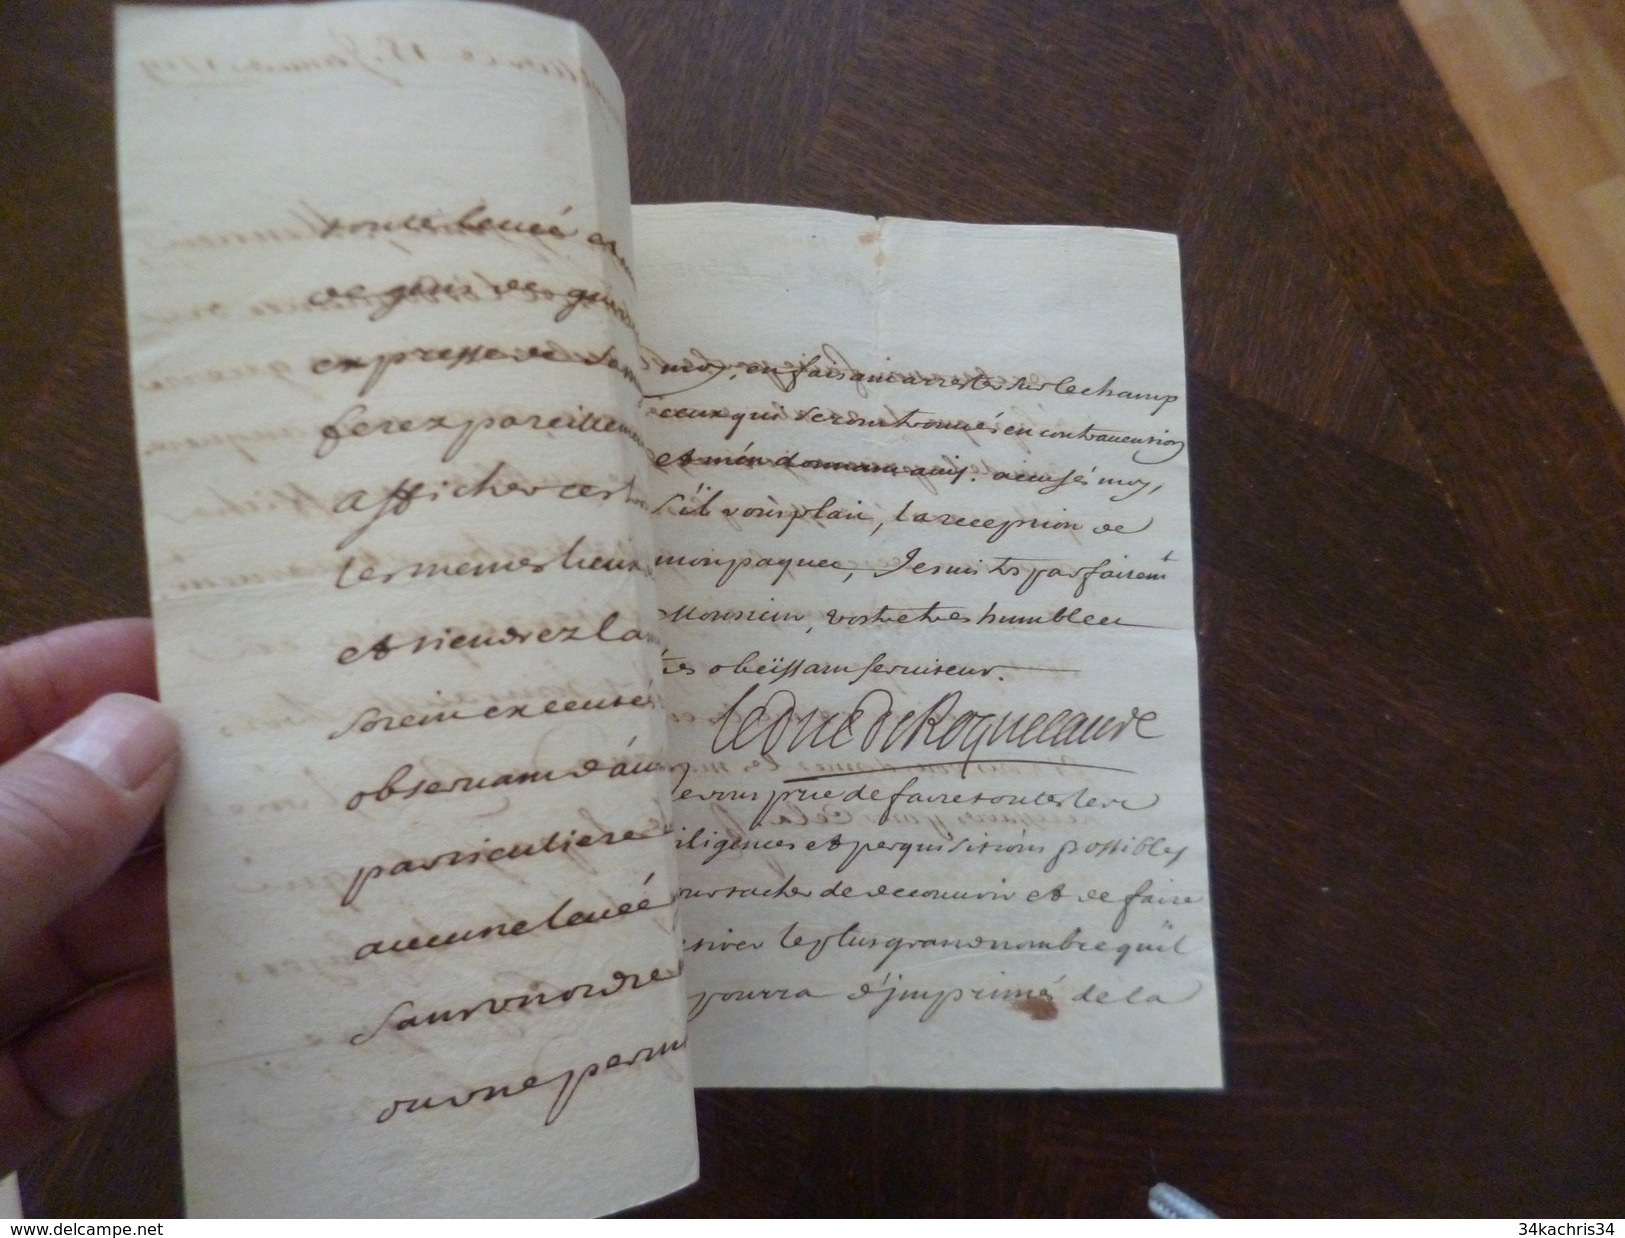 toute leueé et
de gens de guer
expresse de
ferez pareillem
afficher cest
les memes lieux
et tiendrez la
soient executé
obseruant d'au
particuliere
aucune leueé
sans vn ordre
ou vne perm
moy, en faisant arrester sur le champ
ceux qui seront trouués en contrauention
et m'en donnant auis. accusés moy,
s'il vous plait, la reception de
mon paquet, Je suis tres parfaitemt
Monsieur, vostre tres humble et
tres obeïssant seruiteur.
le duc de Roquelaure
Je vous prie de faire toutes les
diligences et perquisitions possibles
pour tacher de decouurir et de faire
le plus grand nombre qu'il
pourra d'jmprimés de la
www.delcampe.net
34kachris34